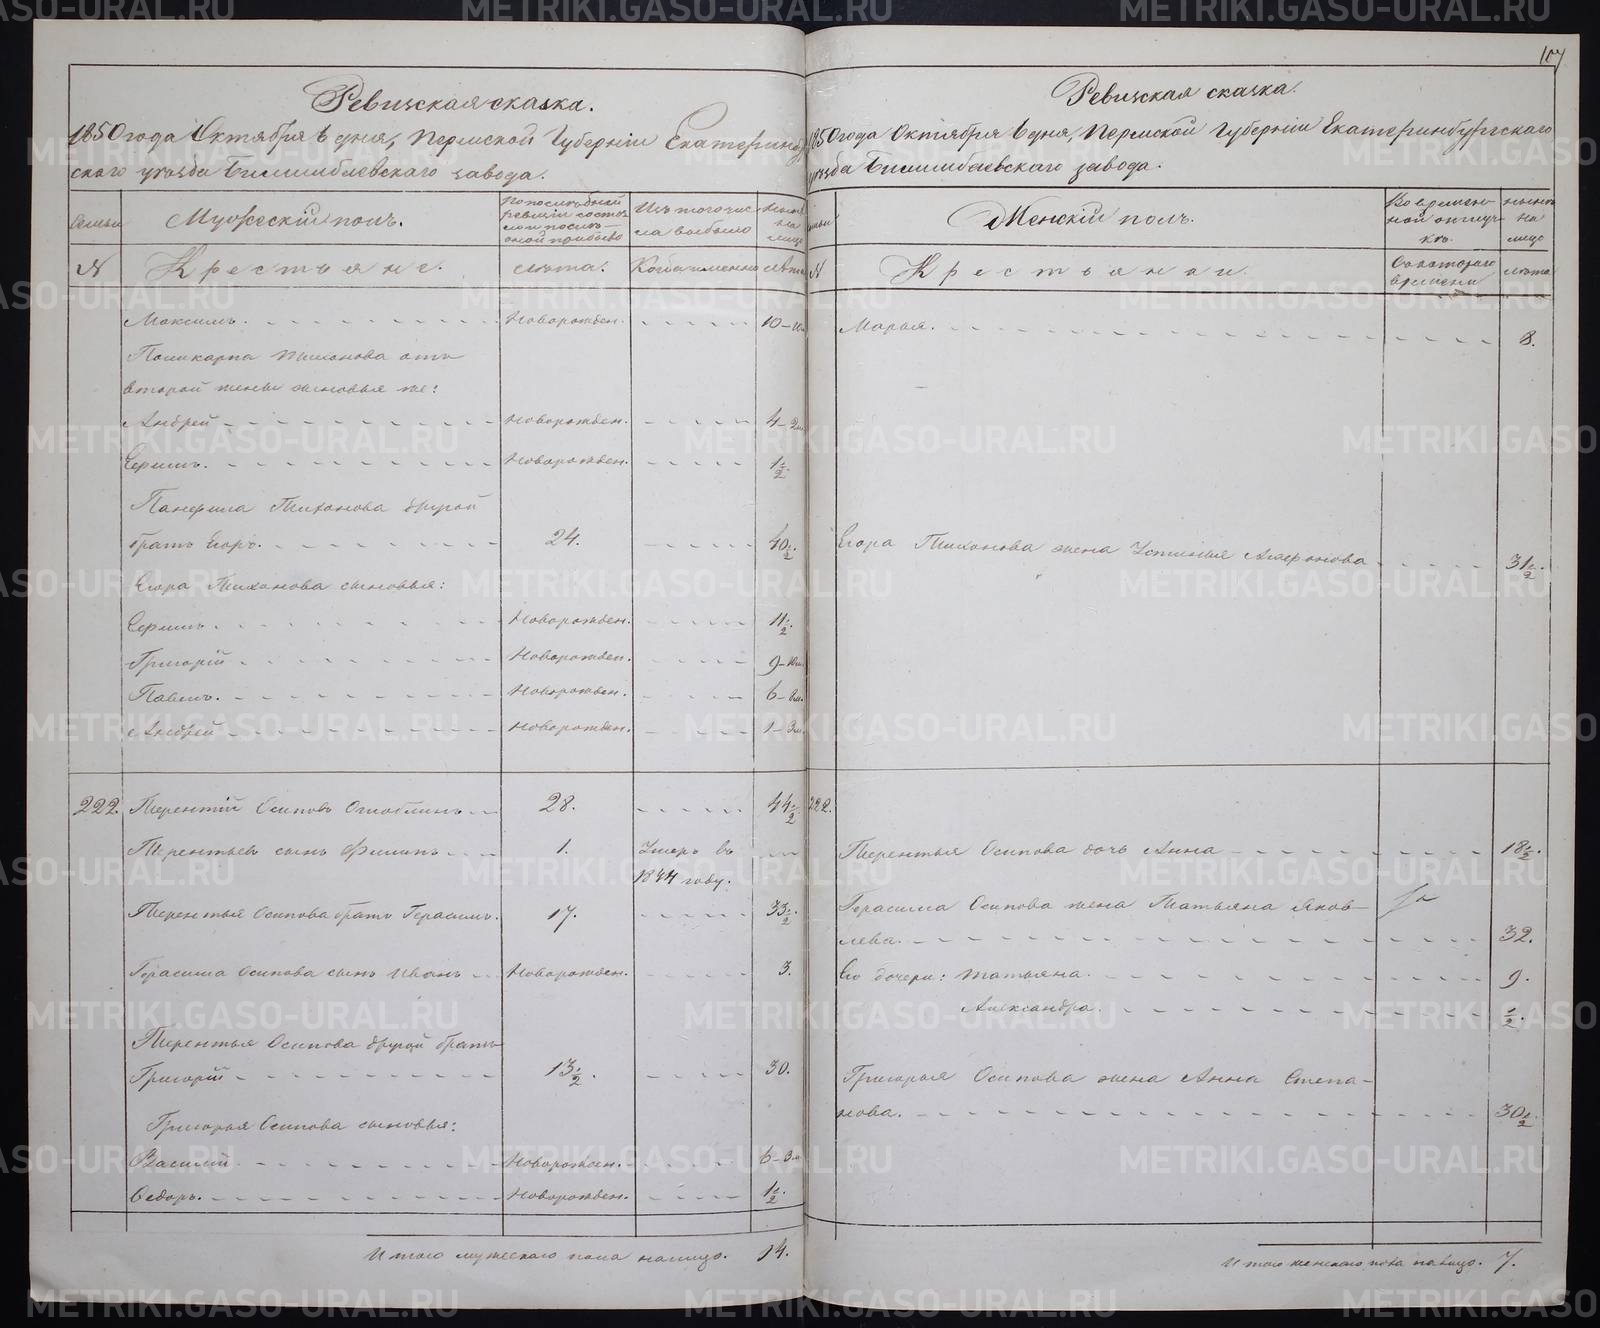 107
Ревизская сказка.
1850 года Октября 6 дня, Пермской Губерніи Екатеринбург
скаго уѣзда Билимбаевскаго завода.
Семьи
Мужескій полъ.
По послѣдней ревизіи состояло и послѣ оной прибыло
Изъ того числа выбыло
Нынѣ на лицо
№
Крестьяне.
лѣта.
Когда именно
лѣта
Максимъ. Новорожден. 10-10м
Поликарпа Тихонова отъ
второй жены сыновья же:
Андрей Новорожден. 4-2м.
Ефимъ. Новорожден. 1½.
Панфила Тихонова другой
братъ Егоръ. 24. 40½.
Егора Тихонова сыновья:
Ефимъ. Новорожден. 11½
Григорій Новорожден. 9-10м.
Павелъ. Новорожден. 6-8м.
Андрей Новорожден. 1-3м.
222. Терентій Осиповъ Оглоблинъ 28. 44½
Терентьевъ сынъ Филипъ 1. Умеръ въ
1844 году.
Терентья Осипова братъ Герасимъ. 17. 33½.
Герасима Осипова сынъ Иванъ Новорожден. 3.
Терентья Осипова другой братъ
Григорій 13½. 30.
Григорья Осипова сыновья:
Василій Новорожден. 6-3м
Ѳедоръ. Новорожден. 1½.
Итого мужескаго пола налицо. 14.
Ревизская сказка.
1850 года Октября 6 дня, Пермской Губерніи Екатеринбургскаго
уѣзда Билимбаевскаго завода.
Семьи
Женскій полъ.
Во временной отлучкѣ.
нынѣ на лицо
№
Крестьянки.
Съ котораго времени
лѣта
Марья. 8.
Егора Тихонова жена Устинья Агафонова 31½.
222.
Терентья Осипова дочь Анна 18½.
Герасима Осипова жена Татьяна Яков-
лева. 32.
Его дочери: Татьяна. 9.
Александра. ½.
Григорья Осипова жена Анна Степа-
нова. 30½
Итого женскаго пола налицо. 7.
METRIKI.GASO-URAL.RU